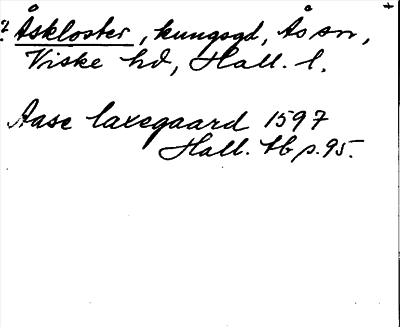 ? Åskloster, kungsgd, Ås sn,
Viske hd, Hall. l.
Aase laxegaard 1597
Hall. tb p. 95.